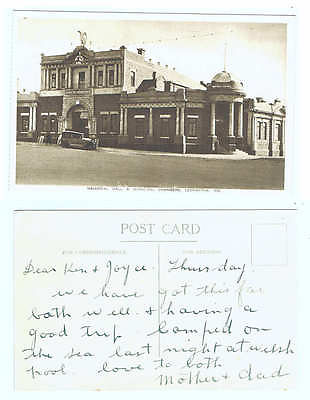 MEMORIAL HALL & MUNICIPAL CHAMBERS, LEONGATHA. VIC
POST CARD
FOR CORRESPONDENCE. FOR ADDRESS.
Dear Ken & Joyce. Thursday.
we have got this far
both well. & having a
good trip camped on
the sea last night at welsh
pool. love to both
Mother & dad